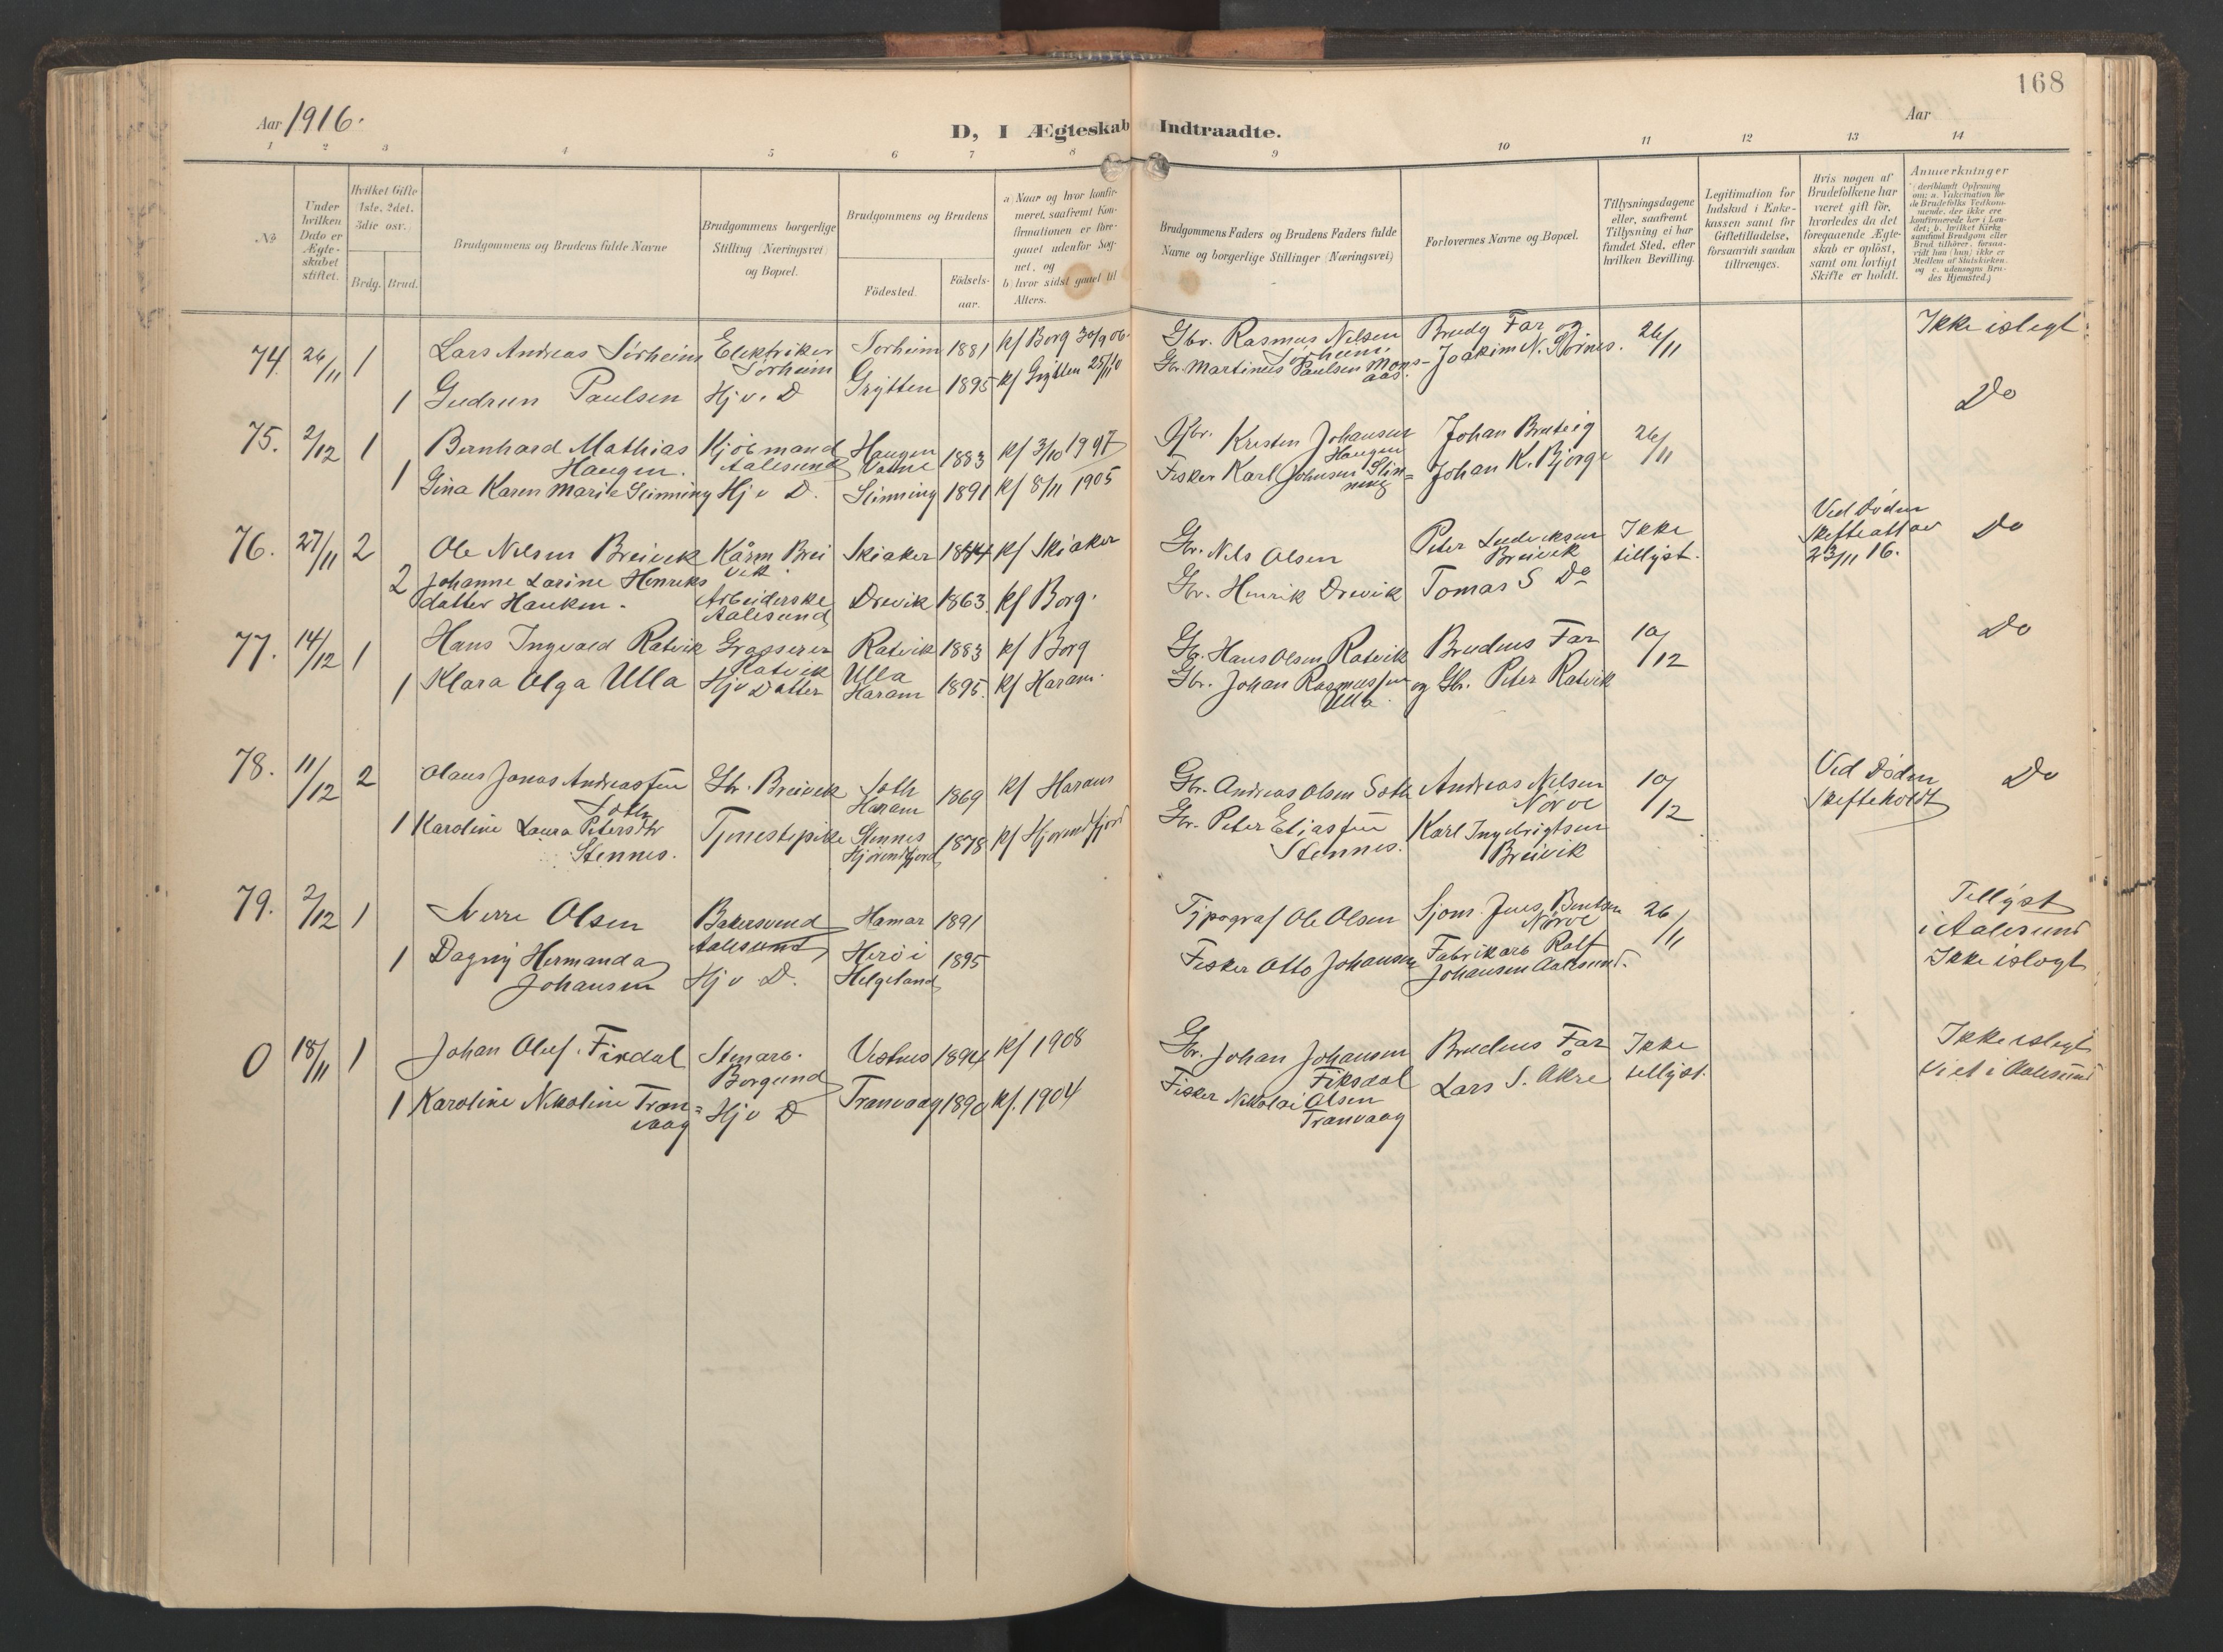 168
Aar 1916.
Aar
D, I Ægteskab Indtraadte.
1 2 3 4 5 6 7 8 9 10 11 12 13 14
№
Under hvilken Dato er Ægteskabet stiftet.
Hvilket Gifte (1ste, 2det, 3die osv.)
Brdg. Brud.
Brudgommens og Brudens fulde Navne
Brudgommens borgerlige Stilling (Næringsvei) og Bopæl.
Brudgommens og Brudens
Fødested.
Fødselsaar.
a) Naar og hvor konfirmeret, saafremt Konfirmationen er foregaaet udenfor Sognet, og
b) hvor sidst gaaet til Alters.
Brudgommens Faders og Brudens Faders fulde Navne og borgerlige Stillinger (Næringsvei)
Forlovernes Navne og Bopæl.
Tillysningsdagene eller, saafremt Tillysning ei har fundet Sted, efter hvilken Bevilling.
Legitimation for Indskud i Enkekassen samt for Giftetilladelse, forsaavidt saadan tiltrænges.
Hvis nogen af Brudefolkene har været gift før, hvorledes da det foregaaende Ægteskab er opløst, samt om lovligt Skifte er holdt.
Anmærkninger
(deriblandt Oplysning om: a. Vakcination for de Brudefolks Vedkommende, der ikke ere konfirmerede her i Landet; b. hvilket Kirkesamfund Brudgom eller Brud tilhører, forsaavidt han (hun) ikke er Medlem af Statskirken, og c. udensogns Brudes Hjemsted.)
74. 26/11 1 Lars Andreas Sørheim Elektriker Sørheim Sorheim 1881 kf Borg 30/9 06 Gbr. Rasmus Nelsen Sørheim. Brudg Far og 26/11 Ikke islegt
1 Gudrun Paulsen Hj v. D Grytten 1895 kf Grytten 25/11 10 Gbr. Martinus Paulsen Monsaas. Joakim N. Nørnes.
Do
75. 2/12 1 Bernhard Mathias Haugen. Kjøbmand Aalesund Haugen Vatne 1883 kf 3/10 1997 Gbr. Kristen Johansen Haugen Johan Brateig 26/11
1 Gina Karen Marie Slinning Hj v D. Slinning 1891 kf 8/11 1905 Fisker Karl Johnsen Slinning Johan K. Bjørge
76. 27/11 2 Ole Nelsen Breivik Kårm Breivik Skiaker 1844 kf Skiaker Gbr. Nils Olsen Peter Ludviksen Breivik Ikke tillyst. Ved Døden Skifteattav 23/11 16. Do
2 Johanne Larine Henriksdatter Hauken. Arbeiderske Aalesund Drevik 1863. kf Borg. Gbr. Henrik Drevik Tomas S Do
77. 14/12 1 Hans Ingvald Ratvik Ratvik Ratvik 1883 kf Borg Gbr. Hans Olsen Ratvik Brudens Far 10/12 Do
1 Klara Olga Ulla Hj v Datter Ulla Haram 1895. kf Haram. Gbr. Johan Rasmussen Ulla. og Gbr. Peter Ratvik
78. 11/12 2 Olaus Jonas Andreassen Soth Gbr. Breivik Soth Haram 1869 kf Haram Gbr. Andreas Olsen Soth Andreas Nelsen Nørve 10/12 Ved Døden Skifteholdt Do
1 Karoline Laura Petersdtr Stennes. Tjenestepike Stennes Hjørendfjord 1878 kf Hjørendfjord Gbr. Peter Eliassen Stennes. Karl Ingebrigtsen Breivik
79. 2/12 1 Olsen Bakersvend Aalesund Hamar 1891 Typograf Ole Olsen Sjøm. Jens Bentsen Nørve 26/11 Tillyst i Aalesund Ikke islegt
1 Dagny Hermanda Johansen Hj v D. Herø i Helgeland 1895 Fisker Otto Johansen Fabrikarb Rolf Johansen Aalesund.
0 18/11 1 Johan Oluf. Fixdal Stenarb. Borgund Vestnes 1894 kf 1908 Gbr. Johan Johansen Fiksdal Brudens Far Ikke tillyst. Ikke islegt viet i Aalesund
1 Karoline Nikoline Tranvaag Hj v D Tranvaag 1890 kf. 1904 Fisker Nikolai Olsen Tranvaag Lars S. Åkre